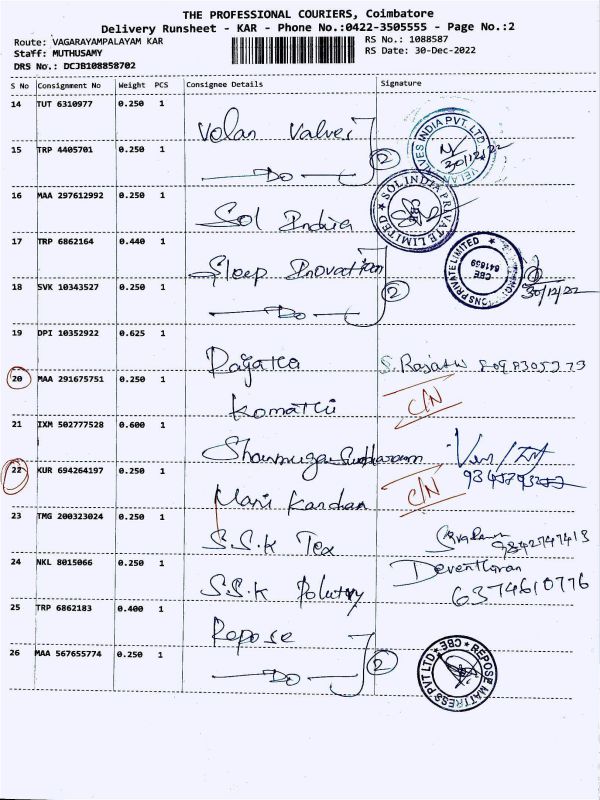 THE PROFESSIONAL COURIERS, Coimbatore
Delivery Runsheet - KAR - Phone No.:0422-3505555 - Page No.:2
Route: VAGARAYAMPALAYAM KAR
RS No.: 1088587
Staff: MUTHUSAMY
RS Date: 30-Dec-2022
DRS No.: DCJB108858702
S No Consignment No Weight PCS Consignee Details Signature
14 TUT 6310977 0.250 1 Velan Valves
15 TRP 4405701 0.250 1 Do 2
VES INDIA PVT LTD
30/12/22
16 MAA 297612992 0.250 1 Sol India
SOL INDIA PRIVATE LIMITED
CBE
17 TRP 6862164 0.440 1 Sleep Inovation
18 SVK 10343527 0.250 1 Do 2
PRIVATE LIMITED
CBE
641659
30/12/22
19 DPI 10352922 0.625 1
20 MAA 291675751 0.250 1 Komathi C/N
21 IXM 502777528 0.600 1
22 KUR 694264197 0.250 1 Mani Kandan C/N
23 TMG 200323024 0.250 1 S.S.K Tex 9842747413
24 NKL 8015066 0.250 1 S.S.K Poultry Deventharan
6374610776
25 TRP 6862183 0.400 1 Repose
26 MAA 567655774 0.250 1 Do 2
REPOSE MATTRESS PVT LTD CBE